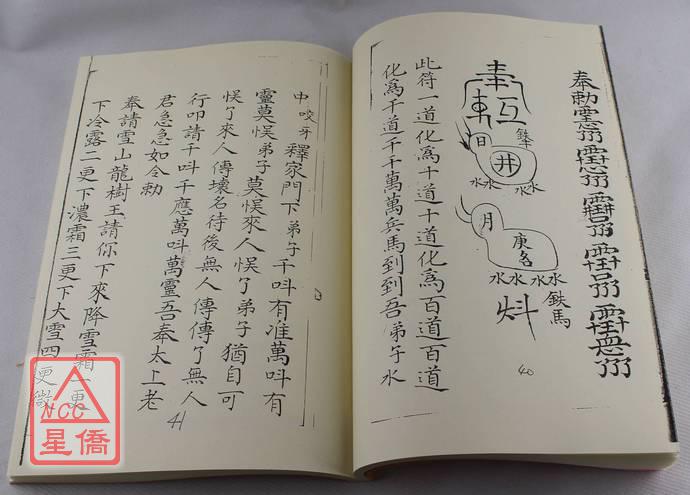 奉勅
奉
日
井
鉄牛
水水
水水
月
庚
水水
水水
鉄馬
40
此符一道化為十道十道化為百道百道
化為千道千千萬萬兵馬到到吾弟子水
中咬牙釋家門下弟子千呌有准萬呌有
靈莫悮弟子莫悮來人悮了弟子猶自可
悮了來人傳壞名待後無人傳傳了無人
行叩請千呌千應萬呌萬靈吾奉太上老
君急急如令勅
奉請雪山龍樹王請你下來降雪霜一更
下冷露二更下濃霜三更下大雪四更微
41
NCC
星僑